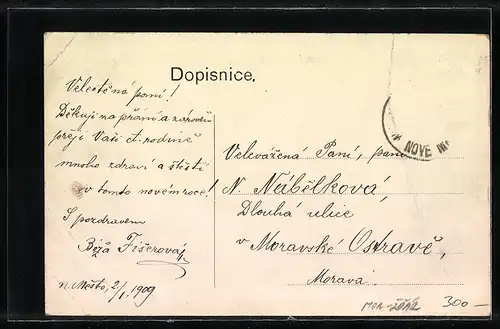 Dopisnice.
Velectěná paní!
Děkuji na přání a zároveň
přeji Vaší ct. rodině
mnoho zdraví a štěstí
v tomto novém roce!
S pozdravem
Béža Fišerová
n. Město, 2/1. 1909
NOVÉ MĚ
Velevážená Paní, paní
N. Nábělková,
Dlouhá ulice
v Moravské Ostravě,
Morava
300-